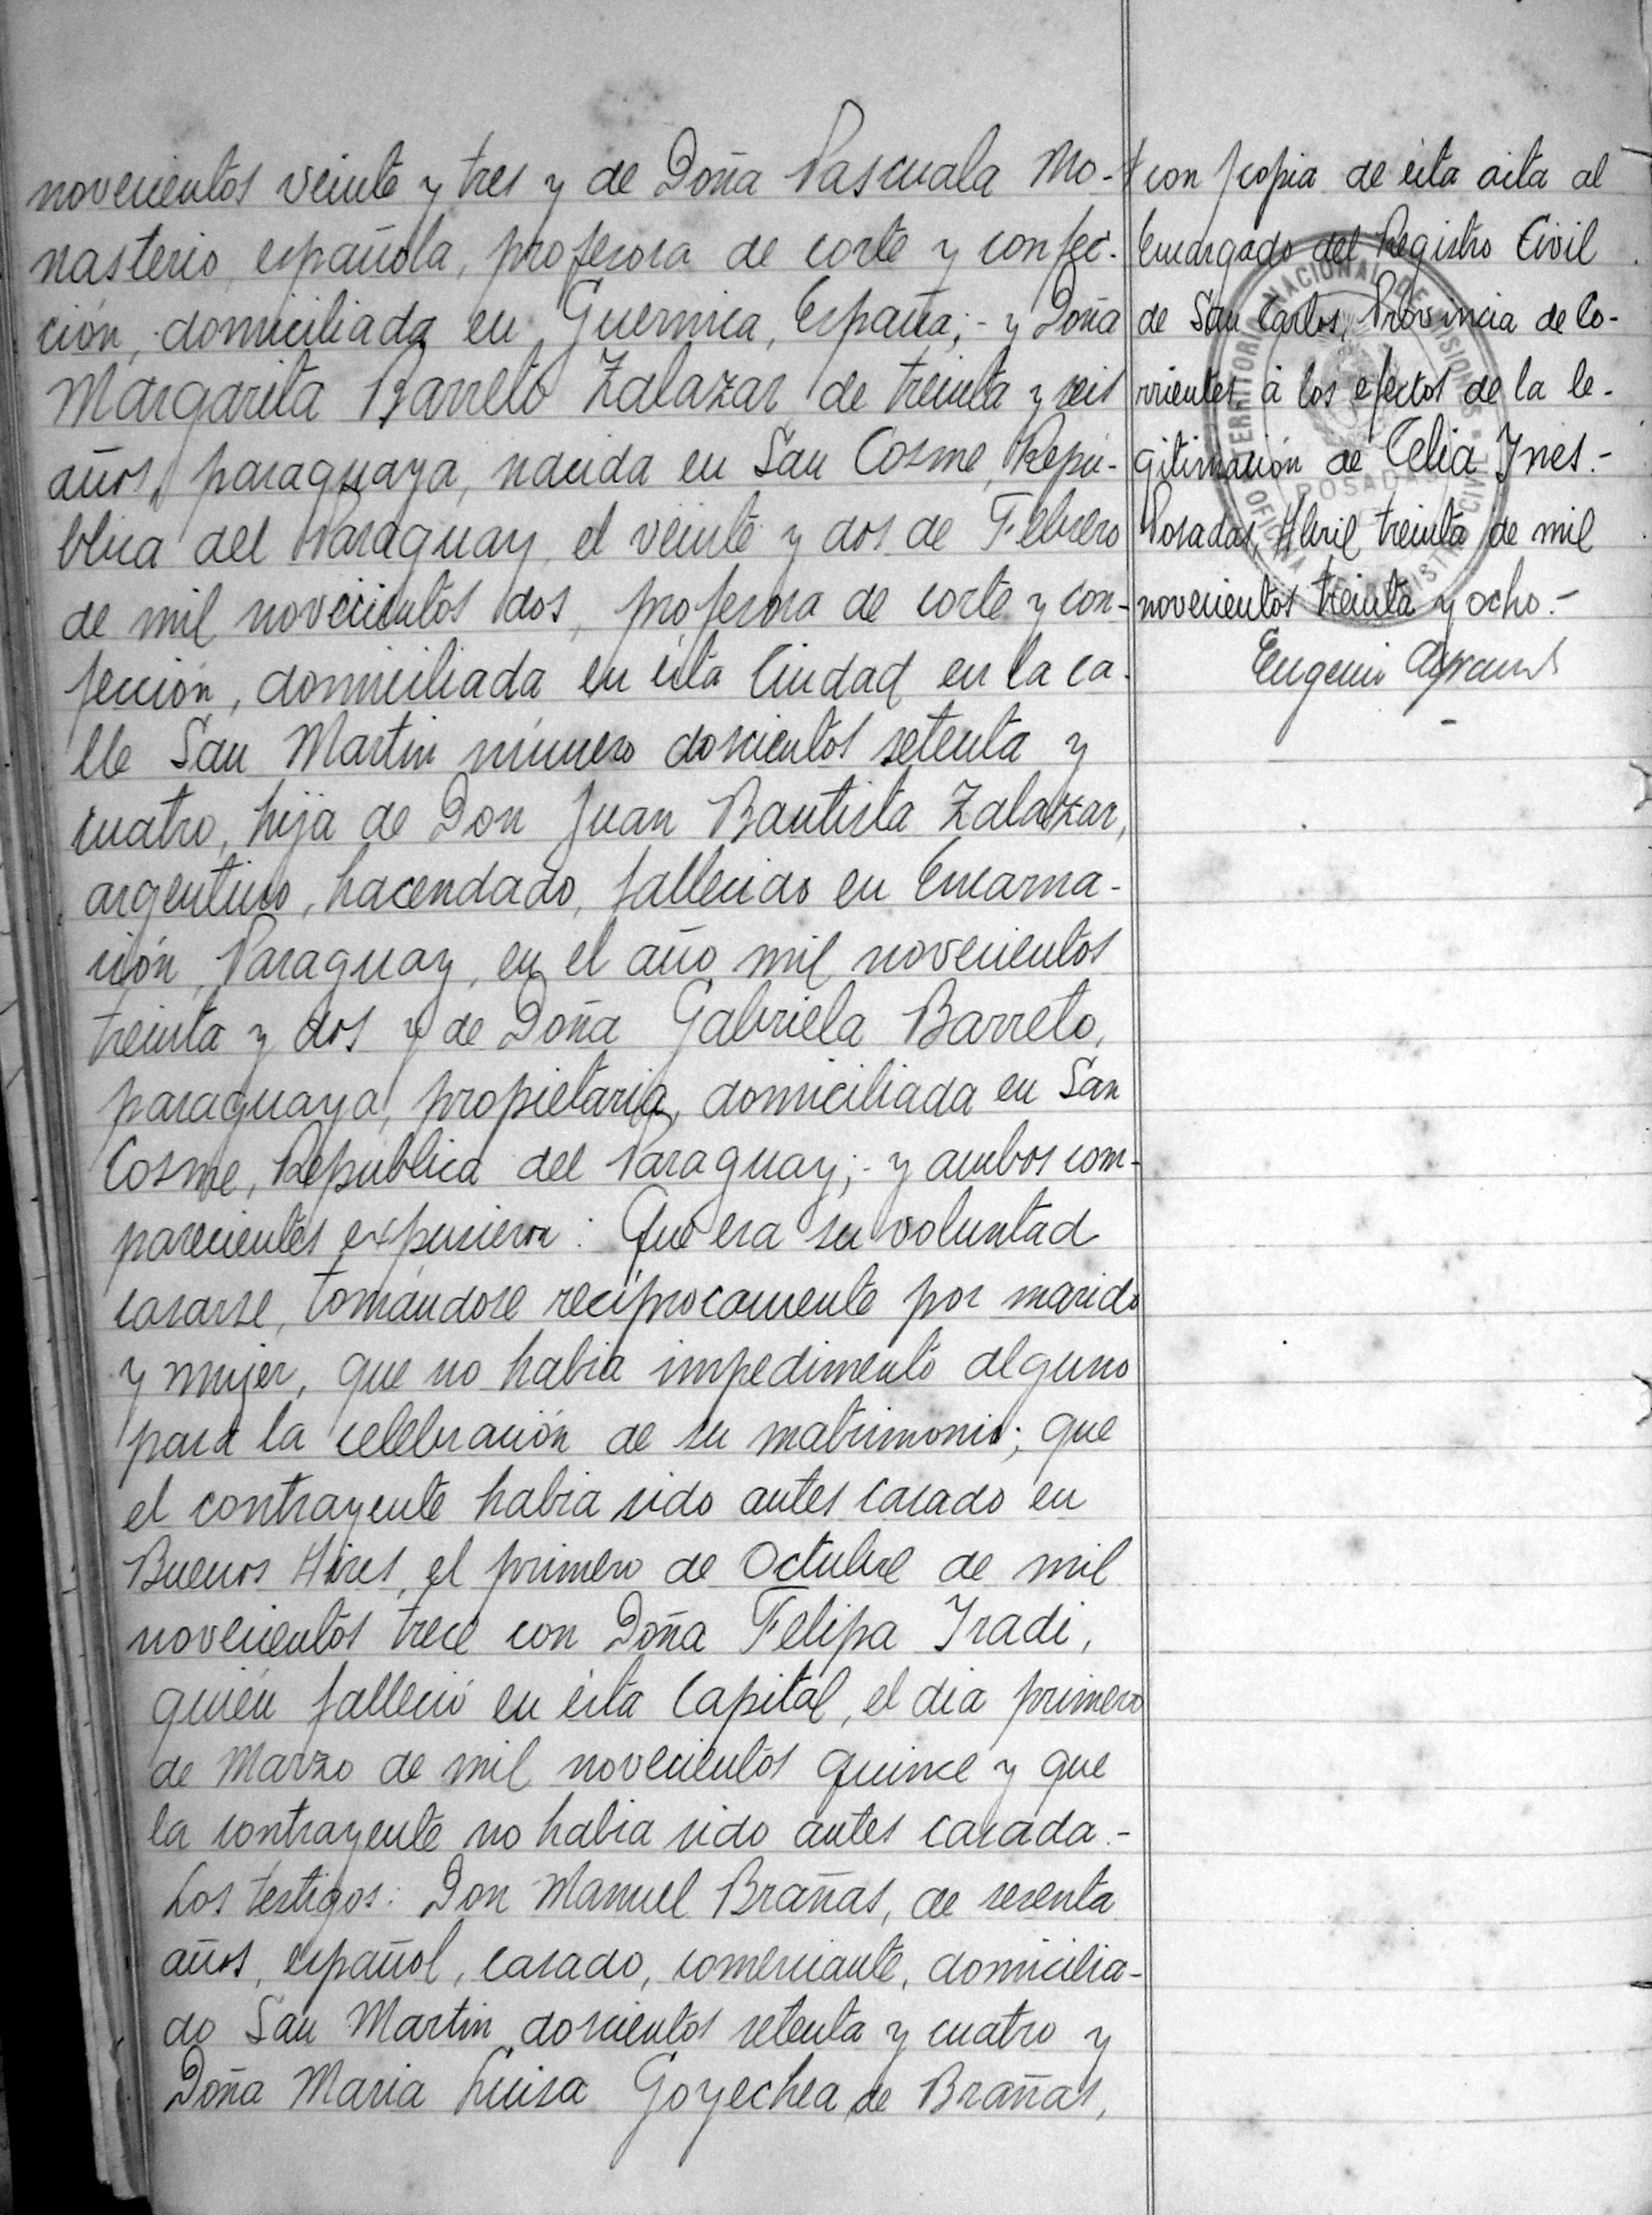 novecientos veinte y tres y de Doña Pascuala Mo-
nasterio, española, profesora de corte y confec-
ción, domiciliada en Guernica, España;- y Doña
Margarita Barreto Zalazar de treinta y seis
años, paraguaya, nacida en San Cosme, Repú-
blica del Paraguay, el veinte y dos de Febrero
de mil novecientos dos, profesora de corte y con-
fección, domiciliada en ésta Ciudad en la ca-
lle San Martin número doscientos setenta y
cuatro, hija de Don Juan Bautista Zalazar,
argentino, hacendado, fallecido en Encarna-
ción, Paraguay, en el año mil novecientos
treinta y dos y de Doña Gabriela Barreto,
paraguaya, propietaria, domiciliada en San
Cosme, República del Paraguay;- y ambos com-
parecientes expusieron: Que era su voluntad
casarse, tomándose recíprocamente por marido
y mujer, que no habia impedimento alguno
para la celebración de su matrimonio; que
el contrayente habia sido antes casado en
Buenos Aires, el primero de Octubre de mil
novecientos trece con Doña Felipa Iradi,
quién falleció en ésta Capital, el dia primero
de Marzo de mil novecientos quince y que
la contrayente no habia sido antes casada.-
Los testigos: Don Manuel Brañas, de sesenta
años, español, casado, comerciante, domicilia-
do San Martin doscientos setenta y cuatro y
Doña Maria Luisa Goyechea de Brañas,
con copia de ésta acta al
Encargado del Registro Civil
de San Carlos, Provincia de Co-
rrientes á los efectos de la le-
gitimación de Celia Ines.-
Posadas, Abril treinta de mil
novecientos treinta y ocho.-
Eugenio
TERRITORIO NACIONAL DE MISIONES
OFICINA DEL REGISTRO CIVIL
POSADAS